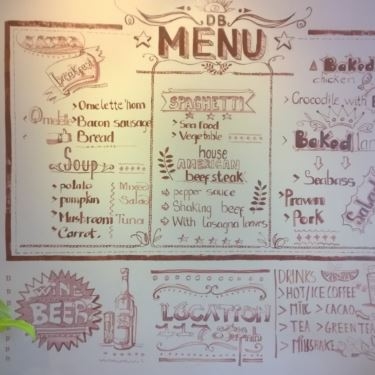 D.B.
MENU
EXTRA
breakfast
Omelette
> Omelette "hom
> Bacon sausage
Bread
SOUP
> potato
> pumpkin
> Mushroom
> Carrot
Mixed
Salad
Tuna
SPAGHETTI
> Sea food
> Vegetable
house
AMERICAN
beef steak
pepper sauce
Shaking beef
With Lasagna leaves
Baked
chicken
> Crocodile with B
Baked
> Seabass
> Prawn
> Pork
Salad
WINE
BEER
LOCATION
117
DRINKS
> HOT/ICE COFFEE
> MILK > CACAO
> TEA > GREEN TEA
> MILKSHAKE